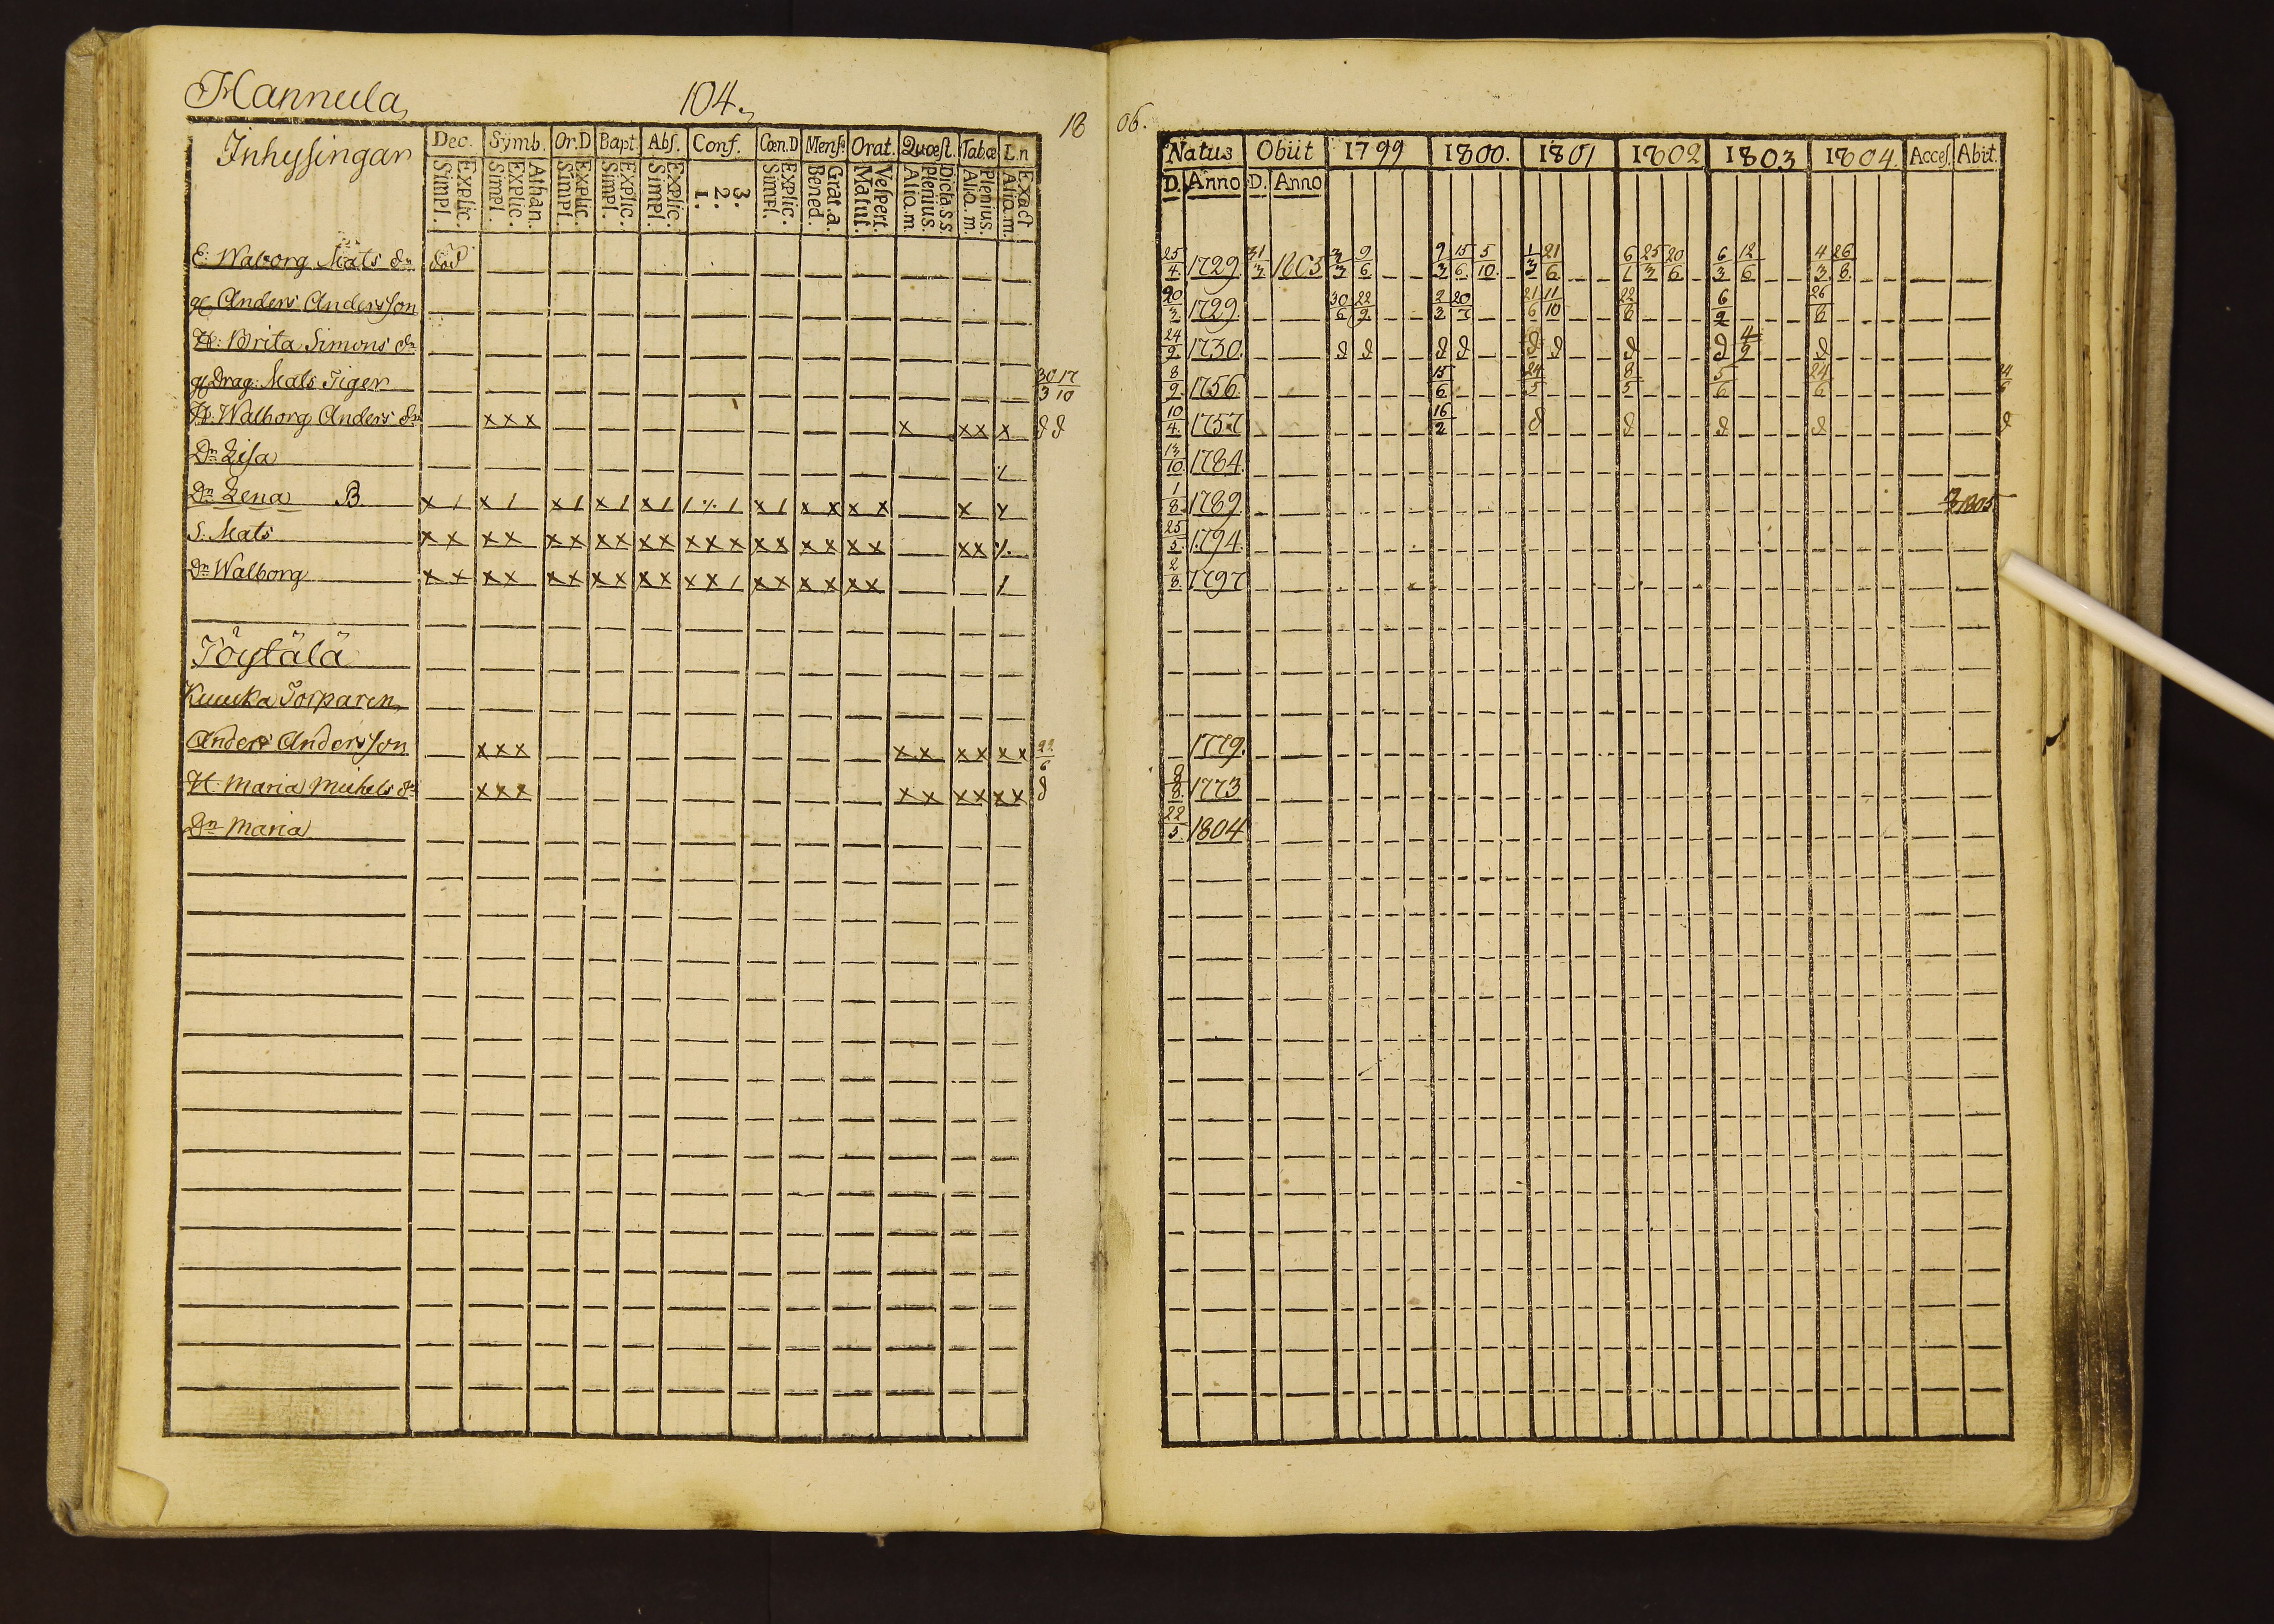 Hannula
104.
18
06.
Inhysingar
Dec. Symb. Or.D Bapt. Abs. Conf. Cœn.D Mens. Orat. Quæst. Tabœ L.n
Simpl. Explic. Simpl. Explic. Athan. Simpl. Explic. Simpl. Explic. Simpl. Explic. 1. 2. 3. Simpl. Explic. Bened. Grat.a. Matut. Vespert. Aliq.m. Plenius. Dicta s.s. Aliq.m. Plenius. Aliq.m. Exact
Natus Obiit 1799 1800. 1801 1802 1803 1804. Acces. Abiit.
D. Anno D. Anno
E: Waborg Mats dr död 25/4. 1729. 31/3 1805 3/3 9/6 9/3 15/6 5/10. 1/3 21/6 6/1 25/3 20/6 6/3 12/6 4/3 26/8
Anders Andersson 20/3 1729. 30/6 22/9 2/3 20/7 21/6 11/10 22/8 6/2 26/8
H: Brita Simons dr 24/9. 1730. d d d d d d d d 4/9 d
Drag: Mats Tiger 30/3 17/10 8/9. 1756. 15/6 24/5 8/5 5/6 24/6
H: Walborg Anders dr x x x x x x x d d 10/4. 1757 16/2 d d d d d
Dr Lisa 13/10 1784.
Dr Lena B. 1/8. 1789. 1805
S. Mats 25/5 1794.
Dr Walborg 2/8. 1797
Töysälä
Kuucka Torparen
Anders Andersson x x x x x x x x x 22/6 1779.
H. Maria Michels dr x x x x x x x x x d 8/8 1773
Dr Maria 22/5 1804